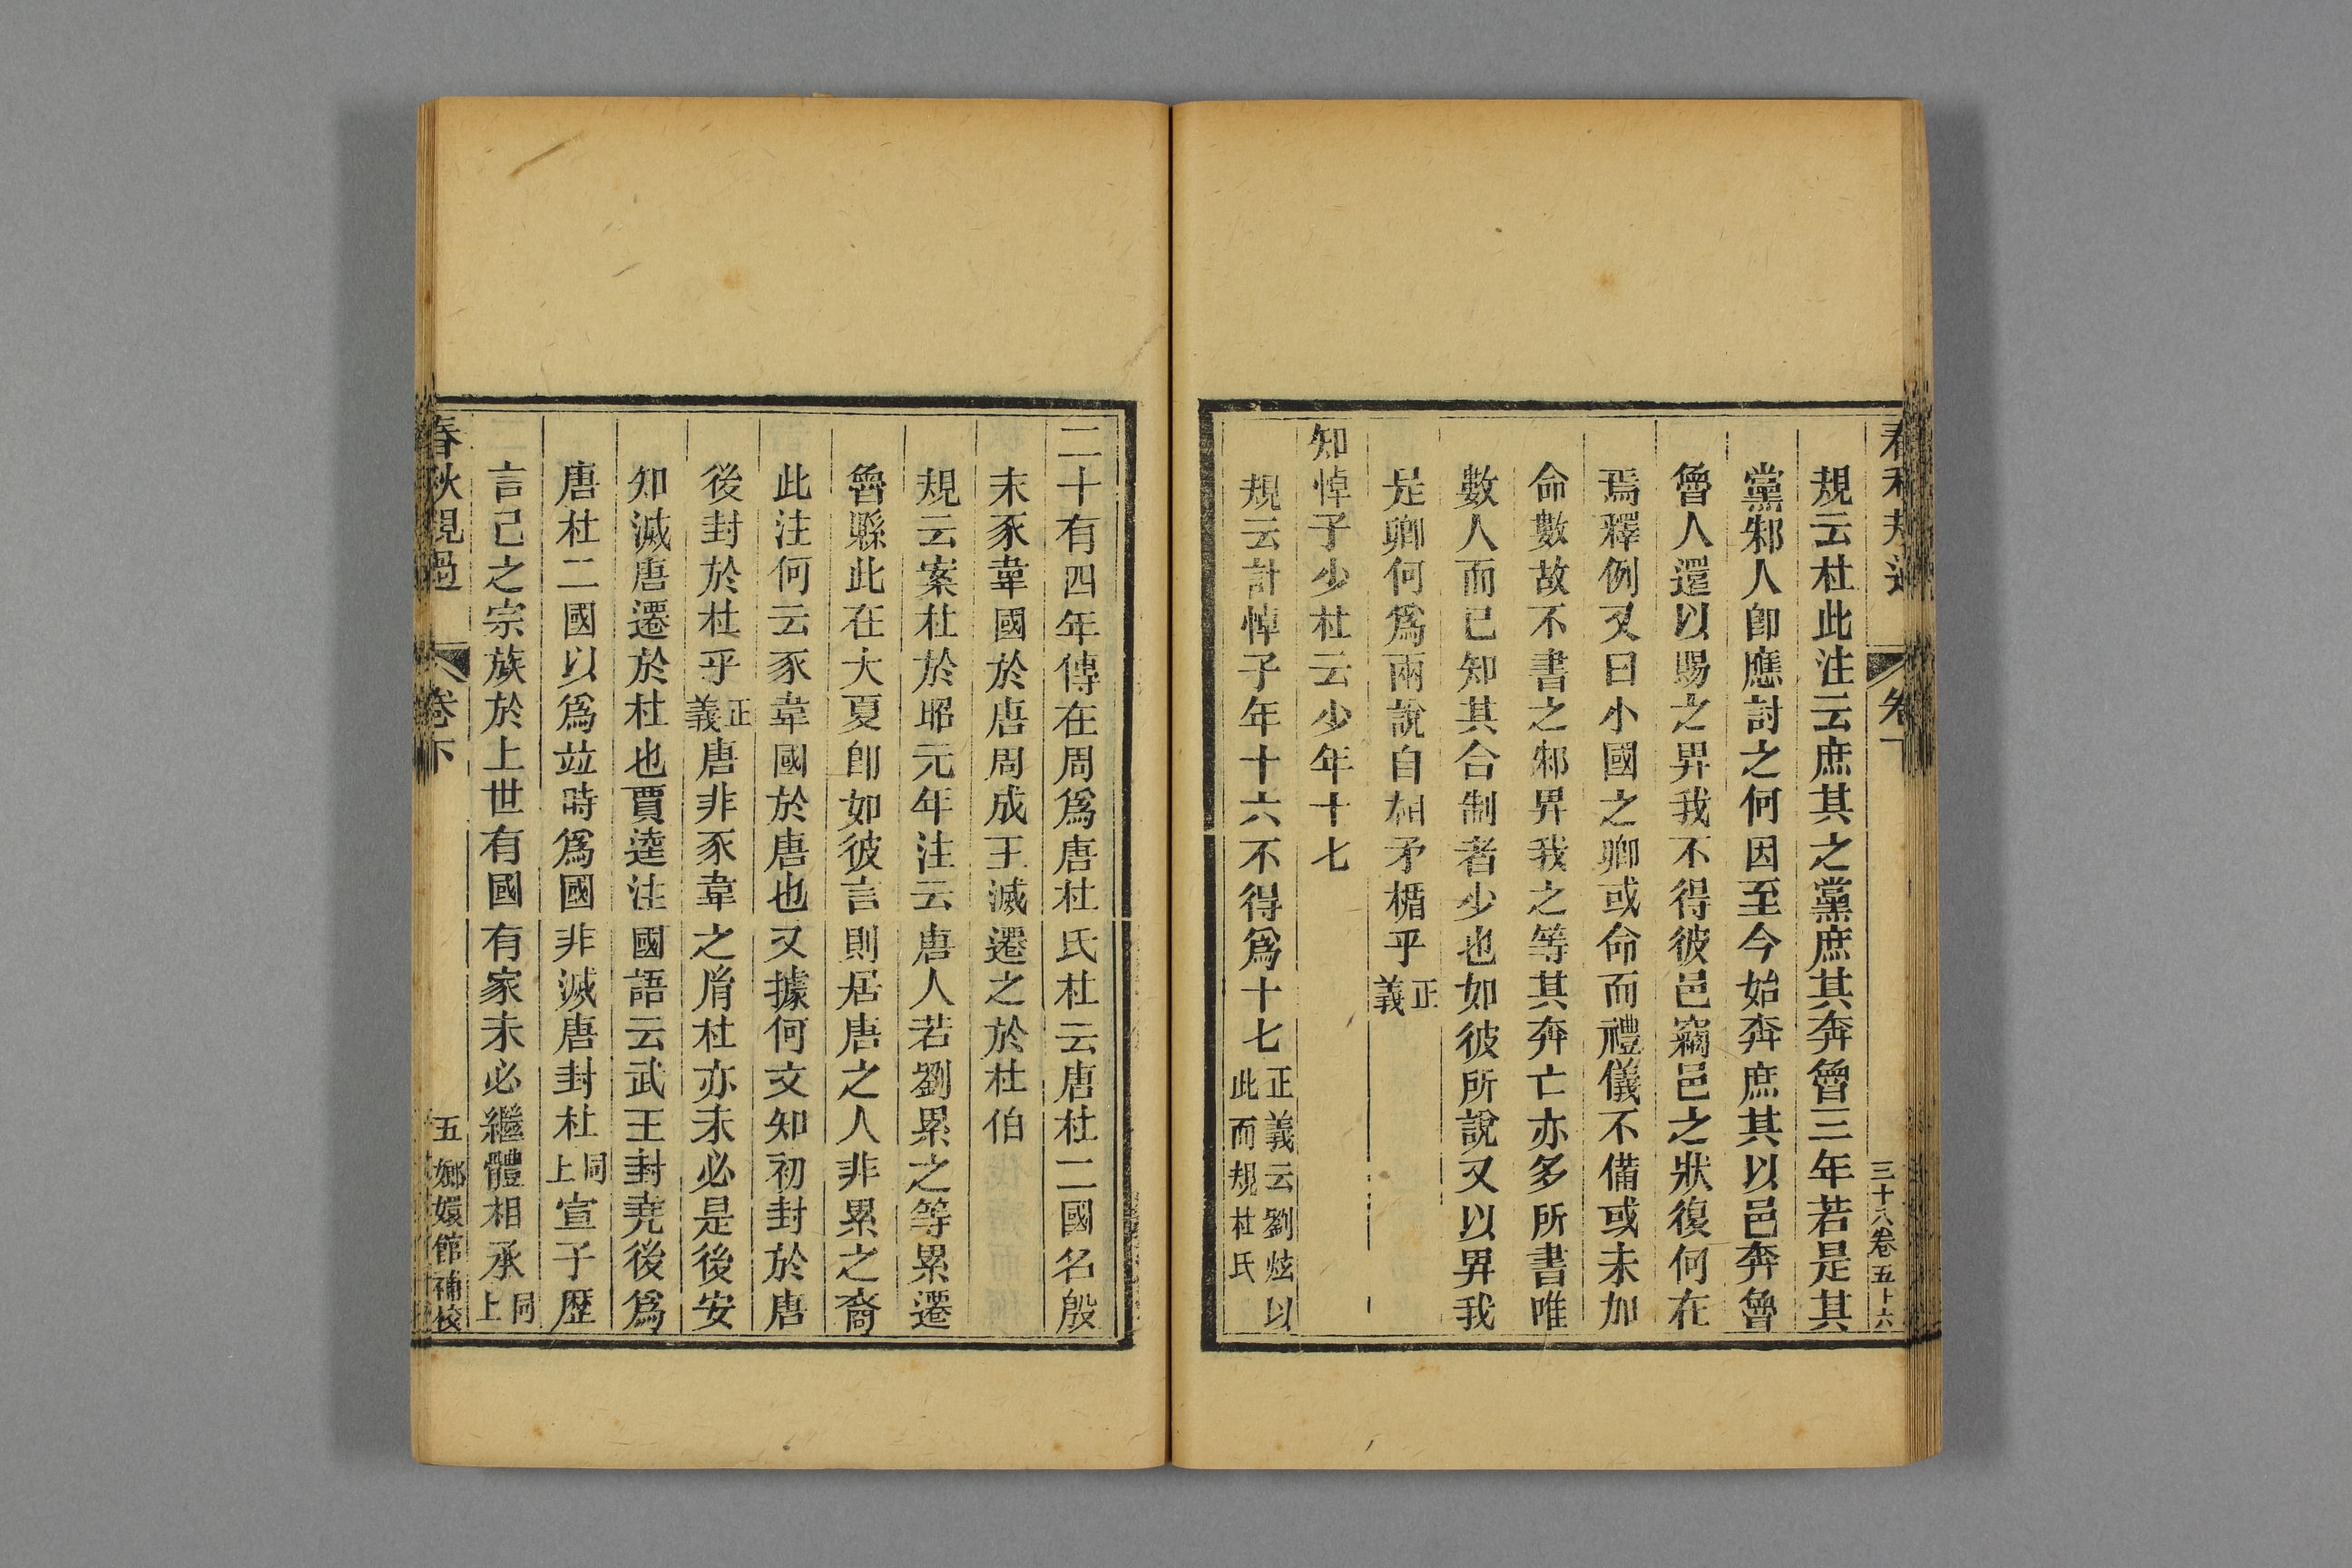 三十八卷五十六
規云杜此注云庶其之黨庶其奔魯三年若是其
黨邾人卽應討之何因至今始奔庶其以邑奔魯
魯人還以賜之畀我不得彼邑竊邑之狀復何在
焉釋例又曰小國之卿或命而禮儀不備或未加
命數故不書之邾畀我之等其奔亡亦多所書唯
數人而已知其合制者少也如彼所說又以畀我
是卿何爲兩說自相矛楯乎正義
知悼子少杜云少年十七
規云計悼子年十六不得爲十七正義云劉炫以此而規杜氏
二十有四年傳在周爲唐杜氏杜云唐杜二國名殷
末豕韋國於唐周成王滅遷之於杜伯
規云案杜於昭元年注云唐人若劉累之等累遷
魯縣此在大夏卽如彼言則居唐之人非累之裔
此注何云豕韋國於唐也又據何文知初封於唐
後封於杜乎正義唐非豕韋之胤杜亦未必是後安
知滅唐遷於杜也賈逵注國語云武王封堯後爲
唐杜二國以爲竝時爲國非滅唐封杜同上宣子歷
言己之宗族於上世有國有家未必繼體相承同上
春秋規過 卷下 五 嫏嬛館補校